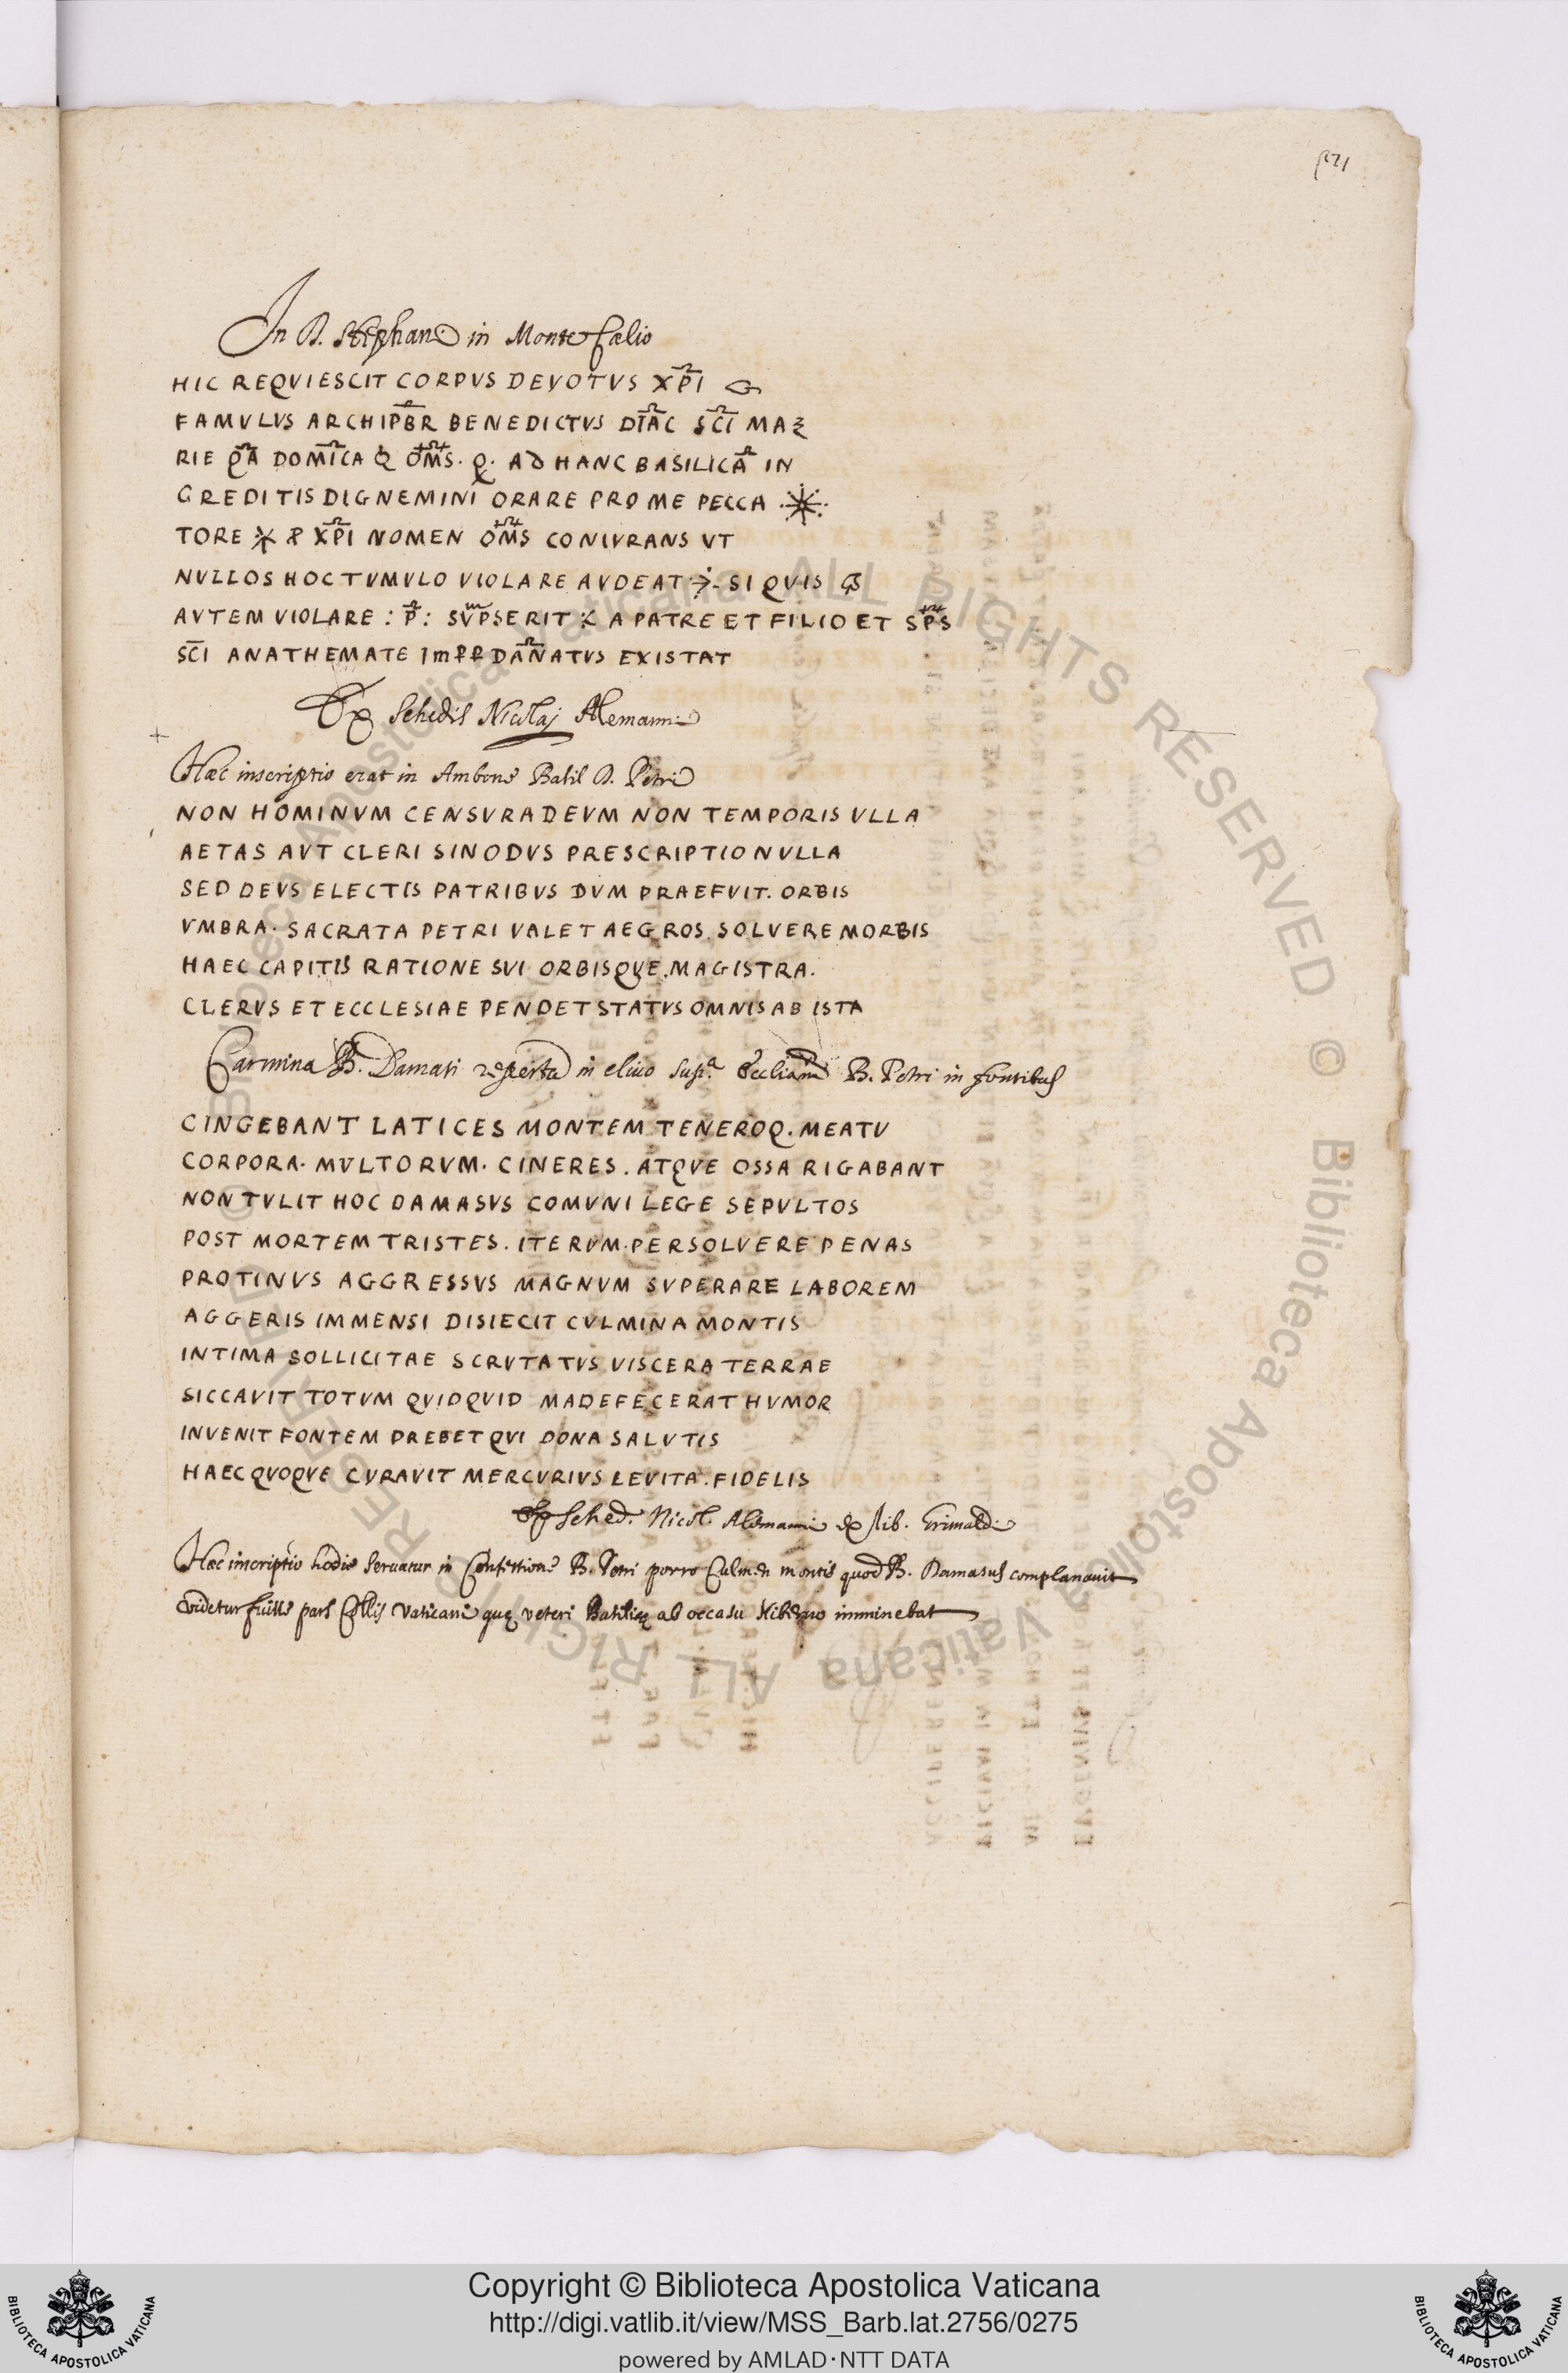 In D. Stephano in Monte Cælio
HIC REQVIESCIT CORPVS DEVOTVS XPI
FAMVLVS ARCHIPBR BENEDICTVS DIAC SCI MA
RIE QA DOMICA OMS. Q. AD HANC BASILICA IN
GREDITIS DIGNEMINI ORARE PRO ME PECCA
TORE XPI NOMEN OMS CONIVRANS VT
NVLLOS HOC TVMVLO VIOLARE AVDEAT SI QVIS
AVTEM VIOLARE : P : SVPSERIT A PATRE ET FILIO ET SPS
SCI ANATHEMATE DANATVS EXISTAT
Ex Schedis Nicolaj Alemanni
Hæc inscriptio erat in Ambone Basil D. Petri
NON HOMINVM CENSVRA DEVM NON TEMPORIS VLLA
AETAS AVT CLERI SINODVS PRESCRIPTIO NVLLA
SED DEVS ELECTIS PATRIBVS DVM PRAEFVIT. ORBIS
VMBRA. SACRATA PETRI VALET AEGROS. SOLVERE MORBIS
HAEC CAPITIS RATIONE SVI ORBISQVE. MAGISTRA.
CLERVS ET ECCLESIAE PENDET STATVS OMNIS AB ISTA
Carmina B. Damasi reperta in clivo supra Eccliam B. Petri in fontibus
CINGEBANT LATICES MONTEM TENEROQ. MEATV
CORPORA. MVLTORVM. CINERES. ATQVE OSSA RIGABANT
NON TVLIT HOC DAMASVS COMVNI LEGE SEPVLTOS
POST MORTEM TRISTES. ITERVM. PERSOLVERE PENAS
PROTINVS AGGRESSVS MAGNVM SVPERARE LABOREM
AGGERIS IMMENSI DISIECIT CVLMINA MONTIS
INTIMA SOLLICITAE SCRVTATVS VISCERA TERRAE
SICCAVIT TOTVM QVIDQVID MADEFECERAT HVMOR
INVENIT FONTEM PREBET QVI DONA SALVTIS
HAEC QVOQVE CVRAVIT MERCVRIVS LEVITA. FIDELIS
Ex sched. Nicol. Alemanni ex lib. Grimaldi
Hæc inscriptio hodie servatur in Confessione B. Petri porro Culmen montis quod B. Damasus complanavit
videtur fuisse pars Collis Vaticani quę veteri Basilicę ab occasu Hiberno imminebat
Biblioteca Apostolica Vaticana ALL RIGHTS RESERVED © Biblioteca Apostolica Vaticana ALL RIGHTS RESERVED ©
Copyright © Biblioteca Apostolica Vaticana
http://digi.vatlib.it/view/MSS_Barb.lat.2756/0275
powered by AMLAD·NTT DATA
BIBLIOTECA APOSTOLICA VATICANA
BIBLIOTECA APOSTOLICA VATICANA